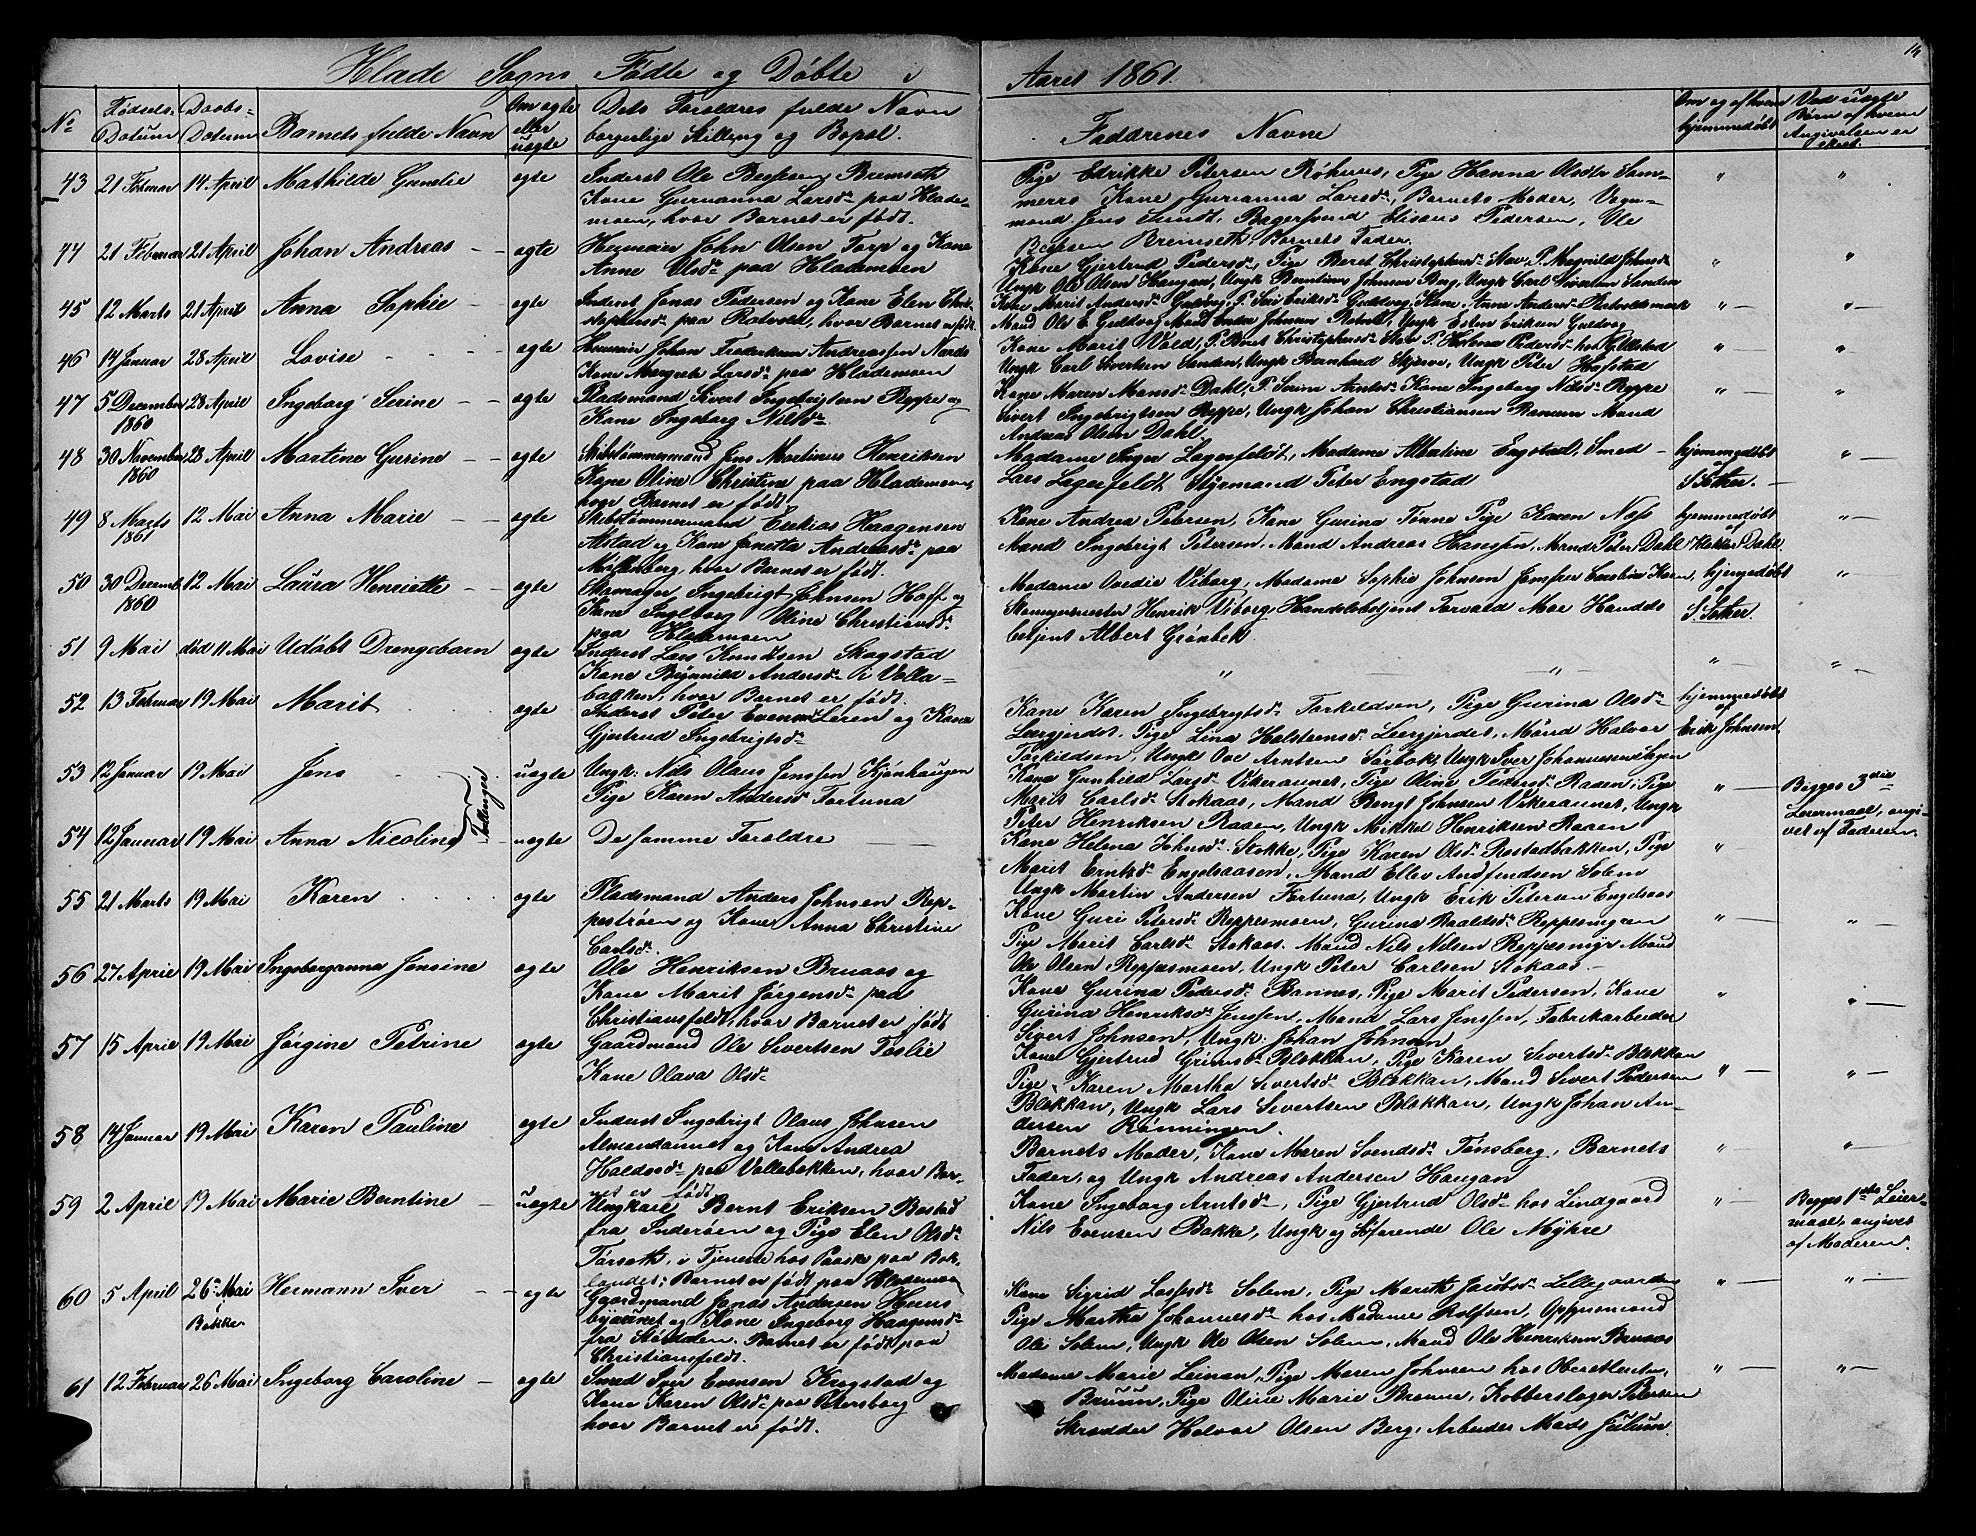 14
Hlade Sogns Fødte og Døbte i Aaret 1861.
No
Fødsels-Datum
Daabs-Datum
Barnets fulde Navn
Om ægte eller uægte
Dets Foræledres fulde Navn borgerlige Stilling og Bopæl.
Faddrenes Navne
Om og af hvem hjemmedøbt
Ved uægte Børn af hvem Angivelsen er skeet.
43 21 Februar 14 April Mathilde Gunelie ægte
Inderst Ole Bessesen Bremseth
Kone Gurianna Larsdr paa Hlade-
moen, hvor Barnet er født.
Pige Edrikke Petersen Røhuus, Pige Hanna Olsdr Sam-
merro Kone Gurianna Larsdr, Barnets Moder, Vogn-
mand Jens Sundt, Bagersvend Elisæus Pedersen, Ole
Bessesen Bremseth Barnets Fader.
44 21 Februar 21 April Johan Andreas ægte
Huusmær John Olsen Torp og Kone
Anne Olsdr paa Hlademoen
Kone Gjertrud Pedersdr, Pige Beret Christophersdr Stav, P. Magnild Johnsdr
Ungk Ole Olsen Haugan, Ungk Berntinus Johnsen Berg, Ungk Carl Sivertsen Sanden
45 12 Marts 21 April Anna Sophie ægte
Inderst Jonas Pedersen og Kone Elen Chri-
stophersdr paa Rotvold, hvor Barnet er født
Kone Marit Andersdr Guldvog, P. Siri Eriksdr Guldvog, Kone Anne Andersdr Rotvoldsmark
Mand Ole E. Guldvog Mand Ender Johnsen Rotvold, Ungk Esten Eriksen Guldvog
46 14 Januar 28 April Lovise ægte
Johan Frederiksen Andreassen Nards
Kone Margrete Larsdr paa Hlademoen
Kone Marit Vold, P. Beret Christophersdr Stav P. Helena Pedersdr hos
Ungk Carl Sivertsen Sanden, Ungk Bernhard Skjerve, Ungk Peter Hofstad
47 5 December 1860 28 April Ingeborg Serine ægte
Pladsmand Sivert Ingebrigtsen Reppe og
Kone Ingeborg Nilsdr
Kone Maren Monsdr Dahl, P. Serine Arntsdr Kone Ingeborg Nilsdr Reppe
Sivert Ingebrigtsen Reppe, Ungk Johan Christiansen Ranum Mand
Andreas Olsen Dahl.
48 30 November 1860 28 April Martine Gurine ægte
Skibstømmermand Jens Martinus Henriksen
Kone Oline Christine paa Hlademoen,
hvor Barnet er født.
Madame Inger Lagerfeldt, Madame Albertine Engstad, Smed
Lars Lagerfeldt Styrmand Peter Engstad
hjemmedøbt af S. Sølser.
49 8 Marts 1861 12 Mai Anna Marie ægte
Skibstømmermand Esekias Haagensen
Alstad og Kone Janetta Andreasdr paa
Møllenberg, hvor Barnet er født.
Kone Andrea Petersen, Kone Gurina Tinne Pige Karen Næss
Mand Ingebrigt Petersen, Mand Andreas Hanssen, Mand Peter Dahl
hjemmedøbt af Klokker Dahl.
50 30 Decemb 1860 12 Mai Laura Henriette ægte
Skomager Ingebrigt Johnsen Hoff og
Kone Ingeborg Oline Christiansdr
paa Hlademoen
Madame Ovedia Viborg, Madame Sophie Johnsen Jomfru Caroline Korn,
Stemyermester Henrik Viborg, Handelsbetjent Torvald Moe Handels
betjent Albert Grønbek
hjemmedøbt af S. Sølser.
51 9 Mai død 11 Mai Udøbt Drengebarn ægte
Inderst Lars Knudsen Skogstad
Kone Brynnild Andersdr i Volla-
bakken, hvor Barnet er født.
52 13 Februar 19 Mai Marit ægte
Inderst Peter Evensen Leren og Kone
Gjertrud Ingebrigtsdr
Kone Karen Ingebrigtsdr Torkildsen, Pige Gurina Olsdr
Leergjerdet, Pige Lina Halsteensdr Leergjerdet, Mand Halvor
Torkildsen, Ungk Ove Arntsen Sørbok, Ungk Iver Johannessen Skjen
hjemmedøbt af Erik Johnsen
53 12 Januar 19 Mai Jens uægte
Ungk: Nils Olaus Jenssen Kjønhaugen
Pige Karen Andersdr Fortuna
Kone Gunhild Larsdr Vikeraunet, Pige Oline Pedersdr Raaen, Pige
Marit Carlsdr Stokaas, Mand Bengt Johnsen Vikeraunet, Ungk
Peter Henriksen Raaen, Ungk Mikkel Henriksen Raaen
Begges 3die Leiermaal, angi-
vet af Faderen.
Tvillinger
54 12 Januar 19 Mai Anna Nicoline uægte
De samme Foræledre
Kone Helena Johnsdr Stokke, Pige Karen Olsdr Rostadbakken, Pige
Marit Erntsdr Engelsaasen, Mand Ellev Andfindsen Solem
Ungk Martin Andersen Fortuna, Ungk Erik Petersen Engelsaas
55 21 Marts 19 Mai Karen ægte
Pladsmand Anders Johnsen Rep-
pestrøen og Kone Anna Christine
Carlsdr.
Kone Guri Petersdr Reppesmoen, Gurina Roaldsdr Reppesmyren
Pige Marit Carlsdr Stokaas, Mand Nils Nilsen Reppesmyr Mand
Ole Olsen Reppesmoen, Ungk Peter Carlsen Stokaas
56 27 April 19 Mai Ingeboranna Jensine ægte
Ole Henriksen Bruaas og
Kone Marit Jørgensdr paa
Christiansfeldt, hvor Barnet er født
Kone Gurina Pedersdr Bannes, Pige Marit Pedersen, Kone
Gurina Henriksdr Jenssen, Mand Lars Jenssen, Fabrikarbeider
Sivert Johnsen, Ungk: Johan Johnsen
57 15 April 19 Mai Jørgine Petrine ægte
Gaardmand Ole Sivertsen Teslie
Kone Olava Olsdr
Kone Gjertrud Grimsdr Blekkan, Pige Karen Sivertsdr Blekkan
Pige Karen Martha Sivertsdr Blekkan, Mand Sivert Pedersen
Blekkan, Ungk Lars Sivertsen Blekkan, Ungk Johan An-
dersen Rønningen.
58 14 Januar 19 Mai Karen Pauline ægte
Inderst Ingebrigt Olaus Johnsen
Almandaunet og Kone Andrea
Haldosdr paa Vollabakken, hvor Bar-
net er født
Barnets Moder, Kone Maren Svendsdr Tønsberg, Barnets
Fader, og Ungk Andreas Andersen Haugan
59 2 April 19 Mai Marie Berntine uægte
Ungkarl Bernt Eriksen Bostad
fra Inderøen og Pige Elen Olsdr
Forseth, i Tjeneste hos Paaske paa Bak-
landet; Barnet er født paa Hlademoen
Kone Ingeborg Arntsdr, Pige Gjertrud Olsdr hos Lindgaard
Nils Evensen Bakke, Ungk og Søfarende Ole Myhre
Begges 1ste Leier-
maal, angivet
af Moderen.
60 5 April 26 Mai i Bakke Hermann Iver ægte
Gaardmand Jonas Andersen Huus
byaunet og Kone Ingeborg Haagensdr
fra Størdalen. Barnet er født paa
Christiansfeldt.
Kone Sigrid Lassesdr Solem, Pige Mareth Jacobsdr Lillegaarden
Pige Martha Johannesdr hos Madame Rolfsen, Oppesmand
Ole Solem, Ungk Ole Olsen Solem, Mand Ole Henriksen Bruaas
61 12 Februar 26 Mai Ingeborg Caroline ægte
Smed Iver Evensen Krogstad og
Kone Karen Olsdr paa Petersborg
hvor Barnet er født.
Madame Marie Leinan, Pige Maren Johnsen hos Oberstlieutn,
Bruun, Pige Oline Marie Bronne, Kobberslager Petersen
Skrædder Halvor Olsen Berg, Arbeider Mads Julum.